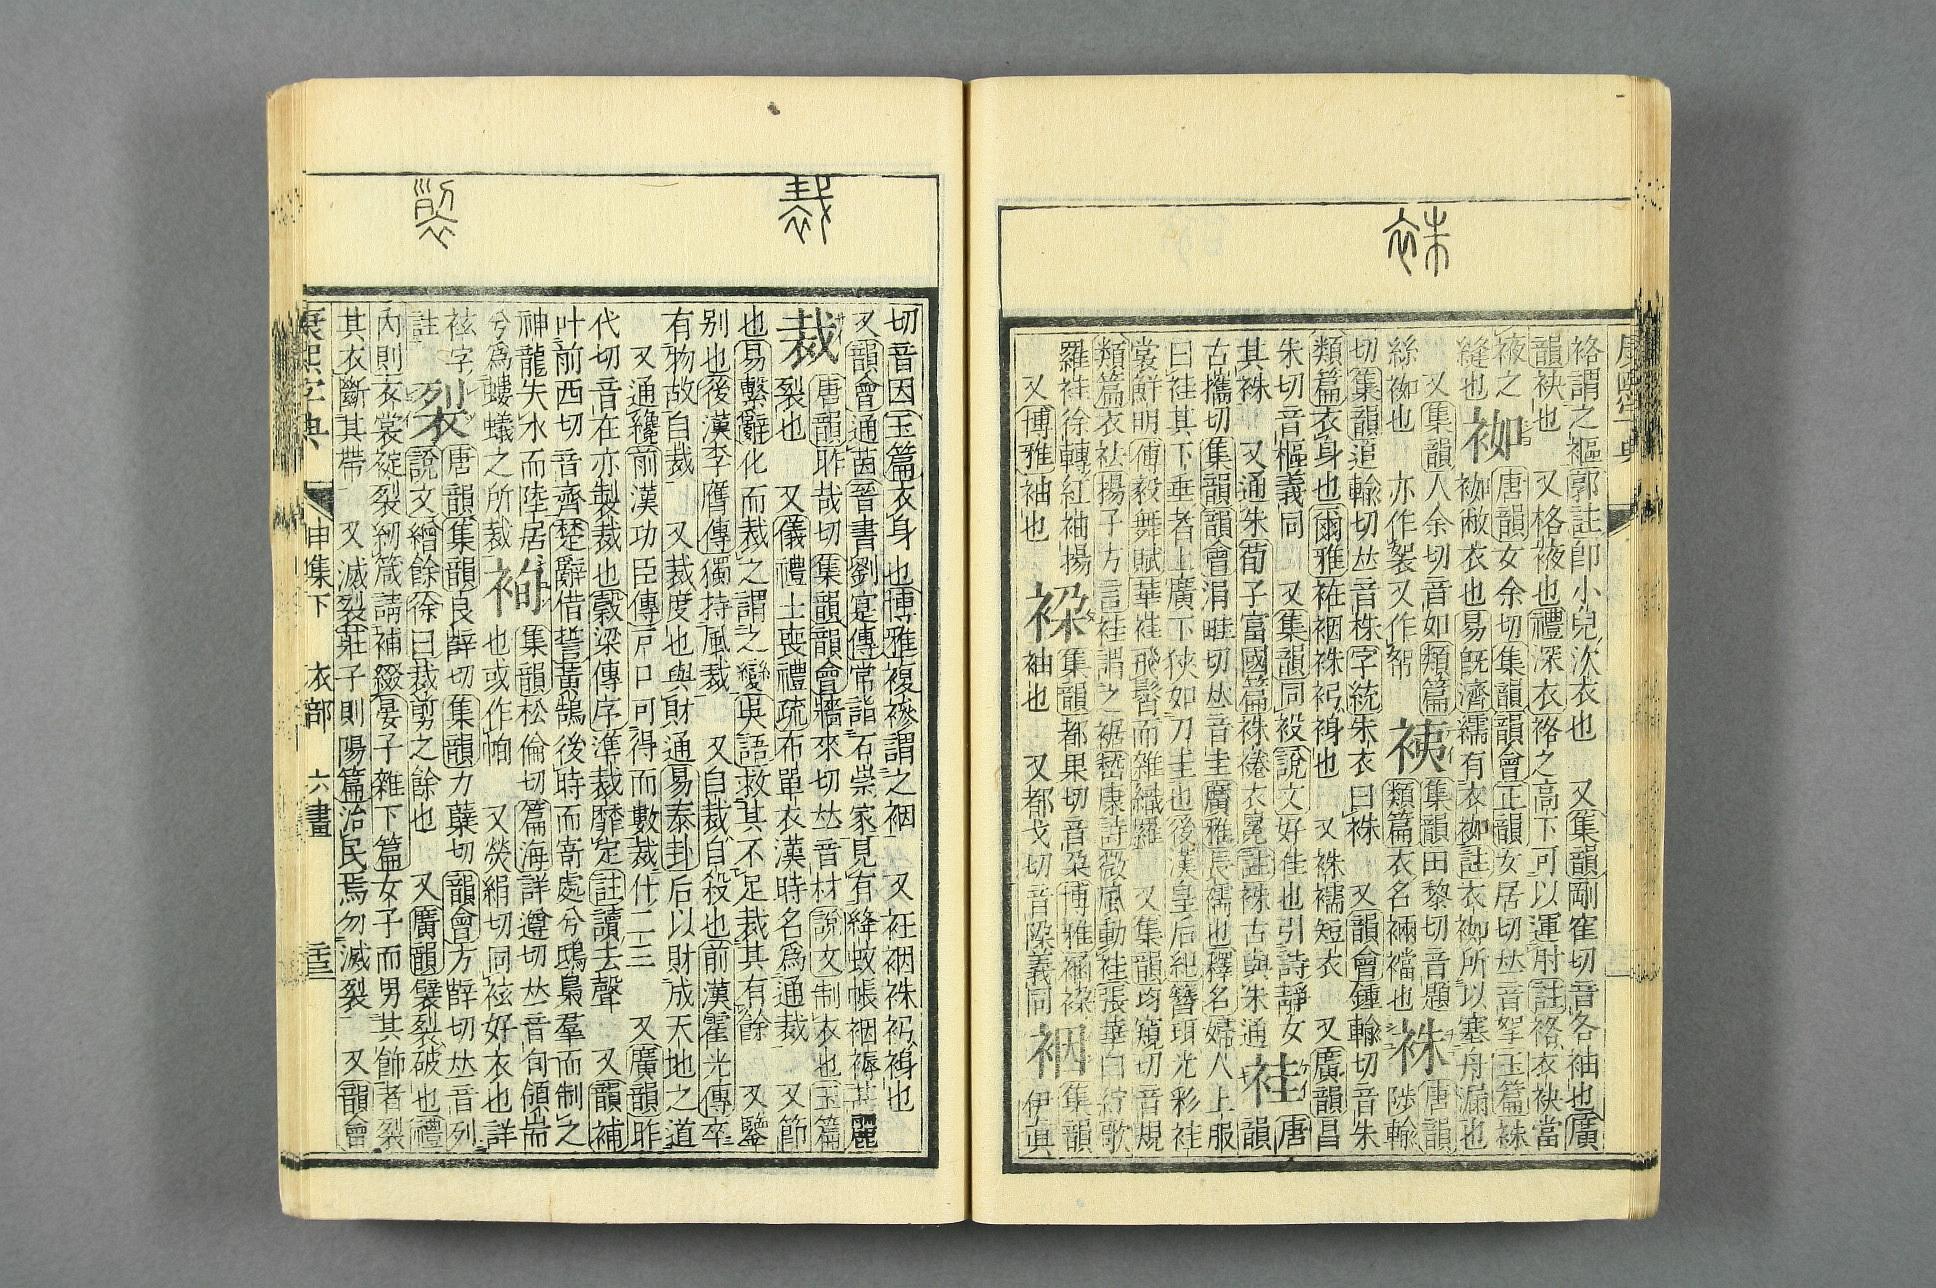 袼謂之裾郭註卽小兒次衣也　又集韻剛寉切音各袖也廣
韻袂也　又袼袼也禮深衣袼之高下可以運肘註袼衣袂當
袼之　袽　唐韻女余切集韻韻會正韻女居切𠀤音挐玉篇袾
縫也　袽敝衣也易旣濟繻有衣袽註衣袽所以塞舟漏也
又集韻人余切音如類篇　袶　集韻田黎切音題　袾　唐韻
絲袽也　亦作袈又作帤　類篇衣名裲襠也　陟輸
切集韻追輸切𠀤音株字統朱衣曰袾　又韻會鍾輸切音朱
類篇衣身也爾雅袾裀袾袀裑也　又袾襦短衣　又廣韻昌
朱切音樞義同　又集韻同袚說文好佳也引詩靜女　袿　唐
其袾　又通朱荀子富國篇袾裷衣冕註袾古與朱通　韻
古攜切集韻韻會涓畦切𠀤音圭廣雅長襦也釋名婦人上服
曰袿其下垂者上廣下狹如刀圭也後漢皇后紀簪珥光彩袿
裳鮮明傅毅舞賦華袿飛髾而雜纖羅　又集韻均窺切音規
類篇衣袪揚子方言袿謂之裾嵆康詩微風動袿張華白紵歌
羅袿徐轉紅袖揚　𧙤　集韻都果切音朶博雅福𧙤　裀　集韻
又博雅袖也　袖也　又都戈切音𣑯義同　伊眞
切音因玉篇衣身也博雅複襂謂之裀　又袾裀袾袀裑也
又韻會通茵晉書劉寔傳常詣石崇家見有絳蚊帳裀褥甚麗
裁　唐韻昨哉切集韻韻會牆來切𠀤音材說文制衣也玉篇
裂也　又儀禮士喪禮疏布單衣漢時名爲通裁　又節
也易繫辭化而裁之謂之變吳語救其不足裁其有餘　又鑒
别也後漢李膺傳獨持風裁　又自裁自殺也前漢霍光傳卒
有物故自裁　又裁度也與財通易泰卦后以財成天地之道
又通纔前漢功臣傳戸口可得而數裁什二三　又廣韻昨
代切音在亦製裁也穀梁傳序準裁靡定註讀去聲　又韻補
叶前西切音齊楚辭借誓黃鵠後時而寄處兮鴟梟羣而制之
神龍失水而陸居　袧　集韻松倫切篇海詳遵切𠀤音旬領耑
兮爲螻蟻之所裁　也或作㡏　又熒絹切同袨好衣也詳
袨字　裂　唐韻集韻良辥切集韻力櫱切韻會方辥切𠀤音列
註　說文繒餘徐曰裁剪之餘也　又廣韻襞裂破也禮
內則衣裳綻裂紉箴請補綴晏子雜下篇女子而男其飾者裂
其衣斷其帶　又滅裂莊子則陽篇治民焉勿滅裂　又韻會
康熙字典　申集下　衣部　六畫